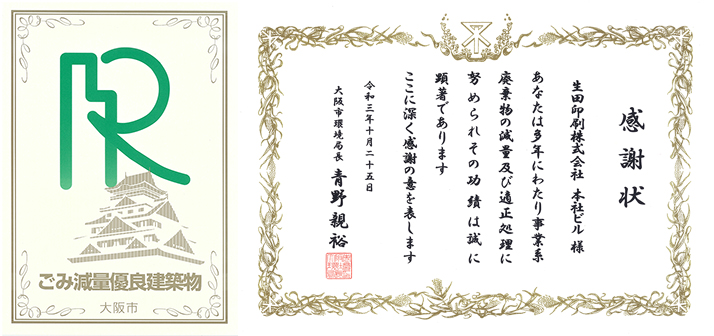 ごみ減量優良建築物
大阪市
感謝状
生田印刷株式会社 本社ビル 様
あなたは多年にわたり事業系
廃棄物の減量及び適正処理に
努められその功績は誠に
顕著であります
ここに深く感謝の意を表します
令和三年十月二十五日
大阪市環境局長 青野親裕